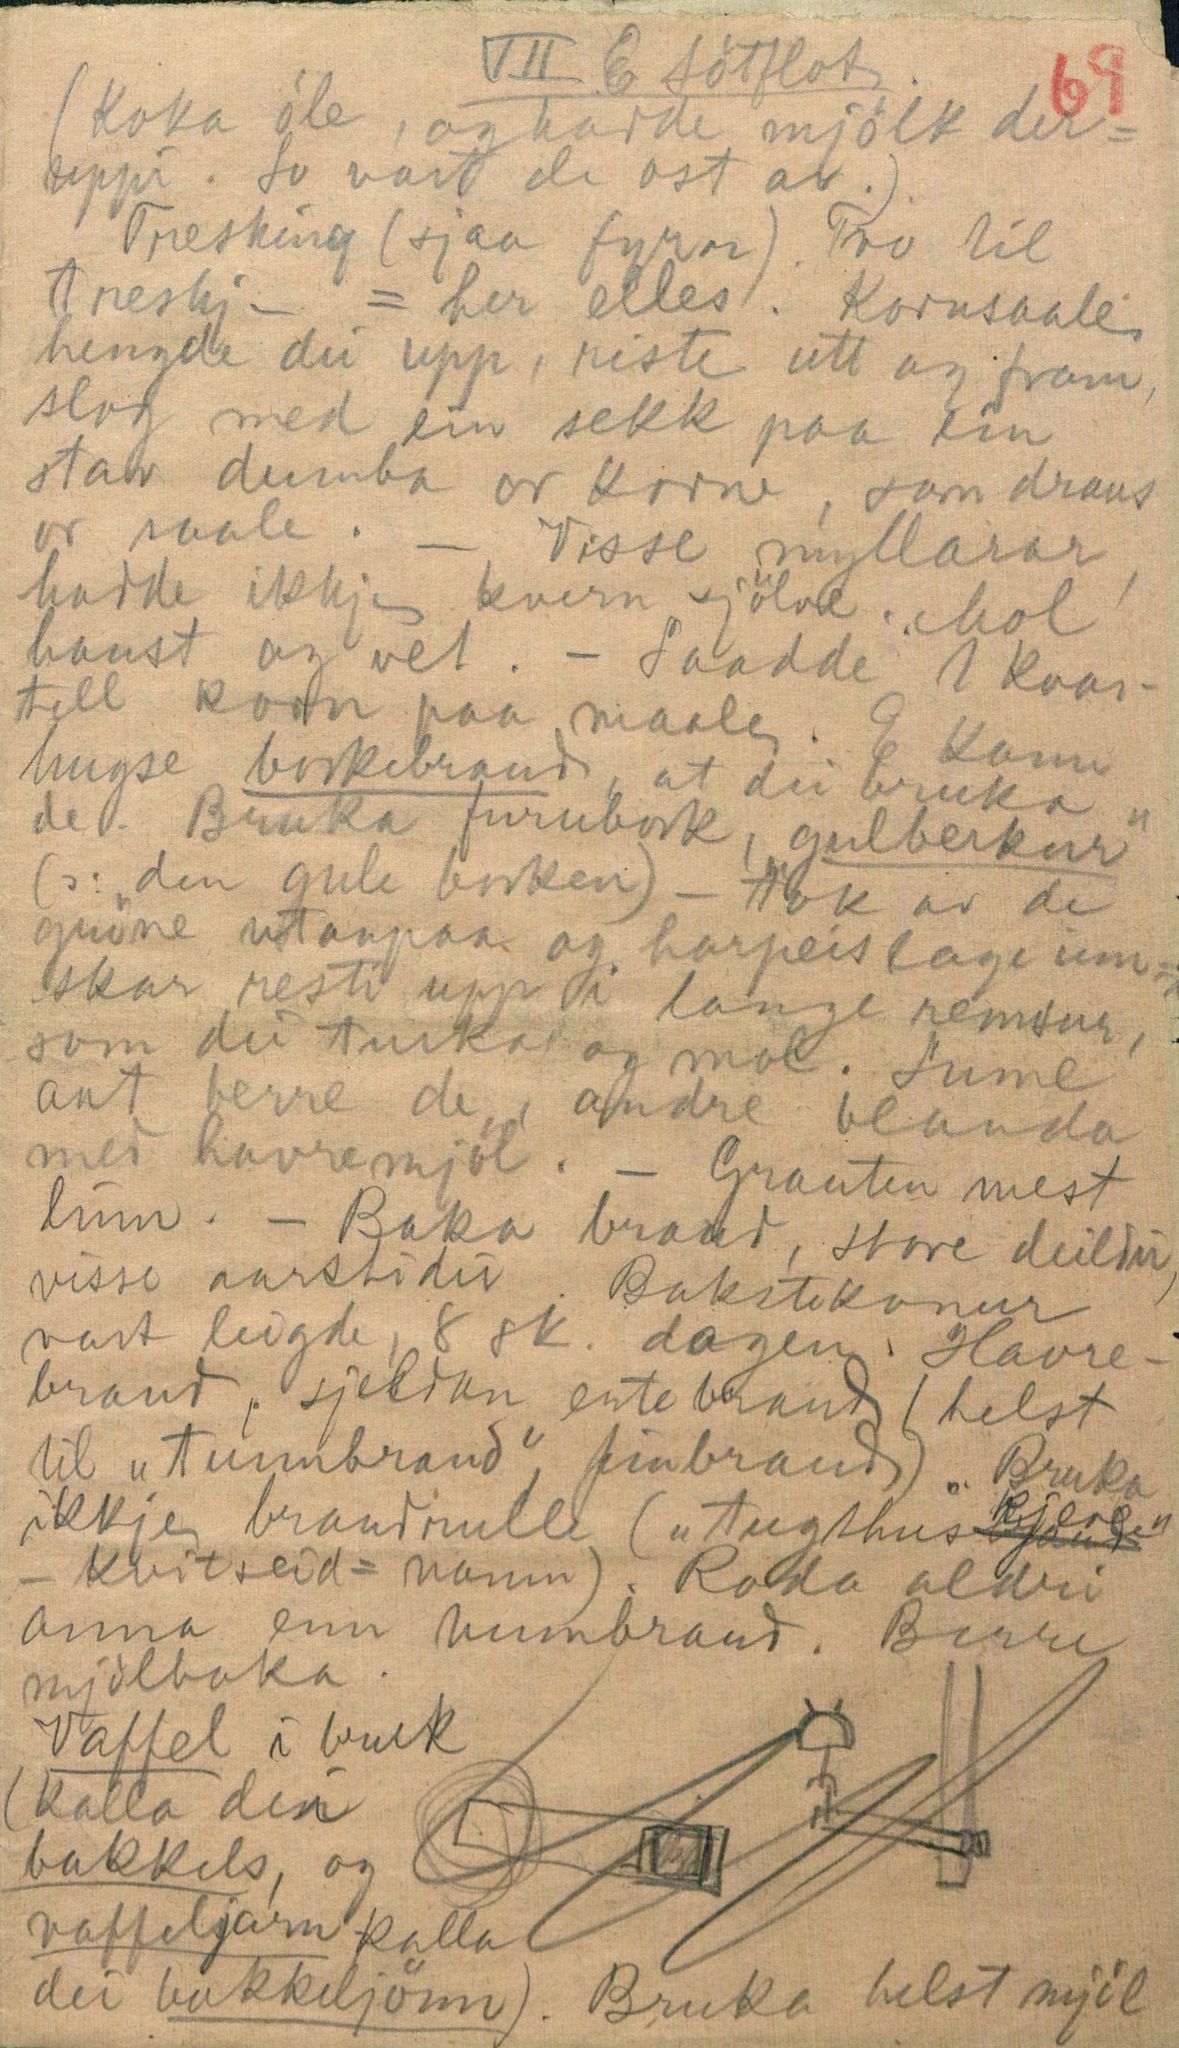 VII E Søtflot.
69
(Koka øle, og hadde mjölk der=
uppi. So vart de ost av.)
Tresking (sjaa fyrr). Tro til
treskj- = her elles. Kornsaale
hengde dei upp, riste utt og fram,
slog med ein sekk paa ein
stav dumba or korne, som draus
or saale. — Visse myllarar,
hadde ikkje kvern sjölve. Mol
haust og vet. — Saadde 1 kvar-
tell korn paa maale. E kann
hugse borkebraud, at dei bruka
de. Bruka furubork, "gulberkur"
(ɔ: den gule borken) — tok av de
gröne utanpaa og harpeislage um=
skar resti upp i lange remsur,
som dei turka og mol. Sume
aat berre de, andre blanda
med havremjöl. — Grauten mest
linn. — Baka braud, store deildir,
visse aarstider. Bakstekonur
vart leigde, 8 sk. dagen. Havre-
braud, sjeldan ertebraud (helst
til "tunnbraud", finbraud). Bruka
ikkje braudrulle ("tugthus kjevle"
— Kvitseid=namn). Rada aldri
anna enn tunnbraud. Berre
mjölbaka.
Vaffel i bruk
(kalla dei
bakkels, og
vaffeljarn kalla
dei bakkeljönn). Bruka helst mjöl